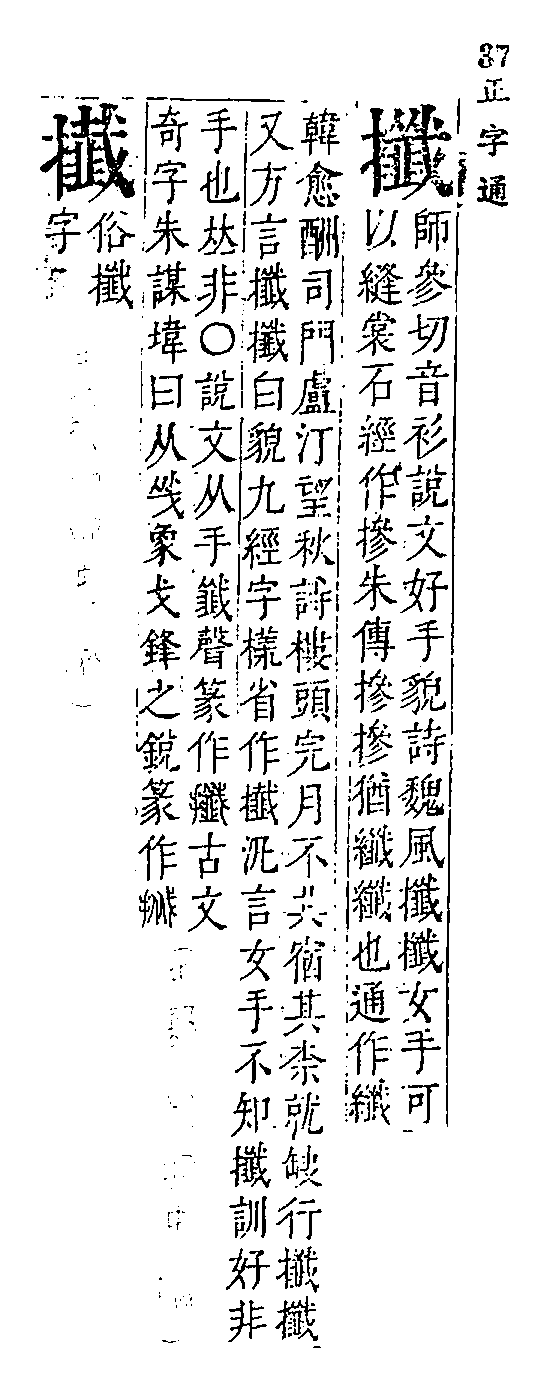 37正字通
攕
師參切音衫說文好手貌詩魏風攕攕女手可
以縫裳石經作摻朱傳摻摻猶纖纖也通作纖
韓愈酬司門盧汀望秋詩樓頭完月不共宿其柰就缺行攕攕
又方言攕攕白貌九經字樣省作㩥汎言女手不知攕訓好非
手也𠀤非〇說文从手韱聲篆作古文
奇字朱謀㙔曰从㦰象戈鋒之銳篆作
㩥
俗攕
字